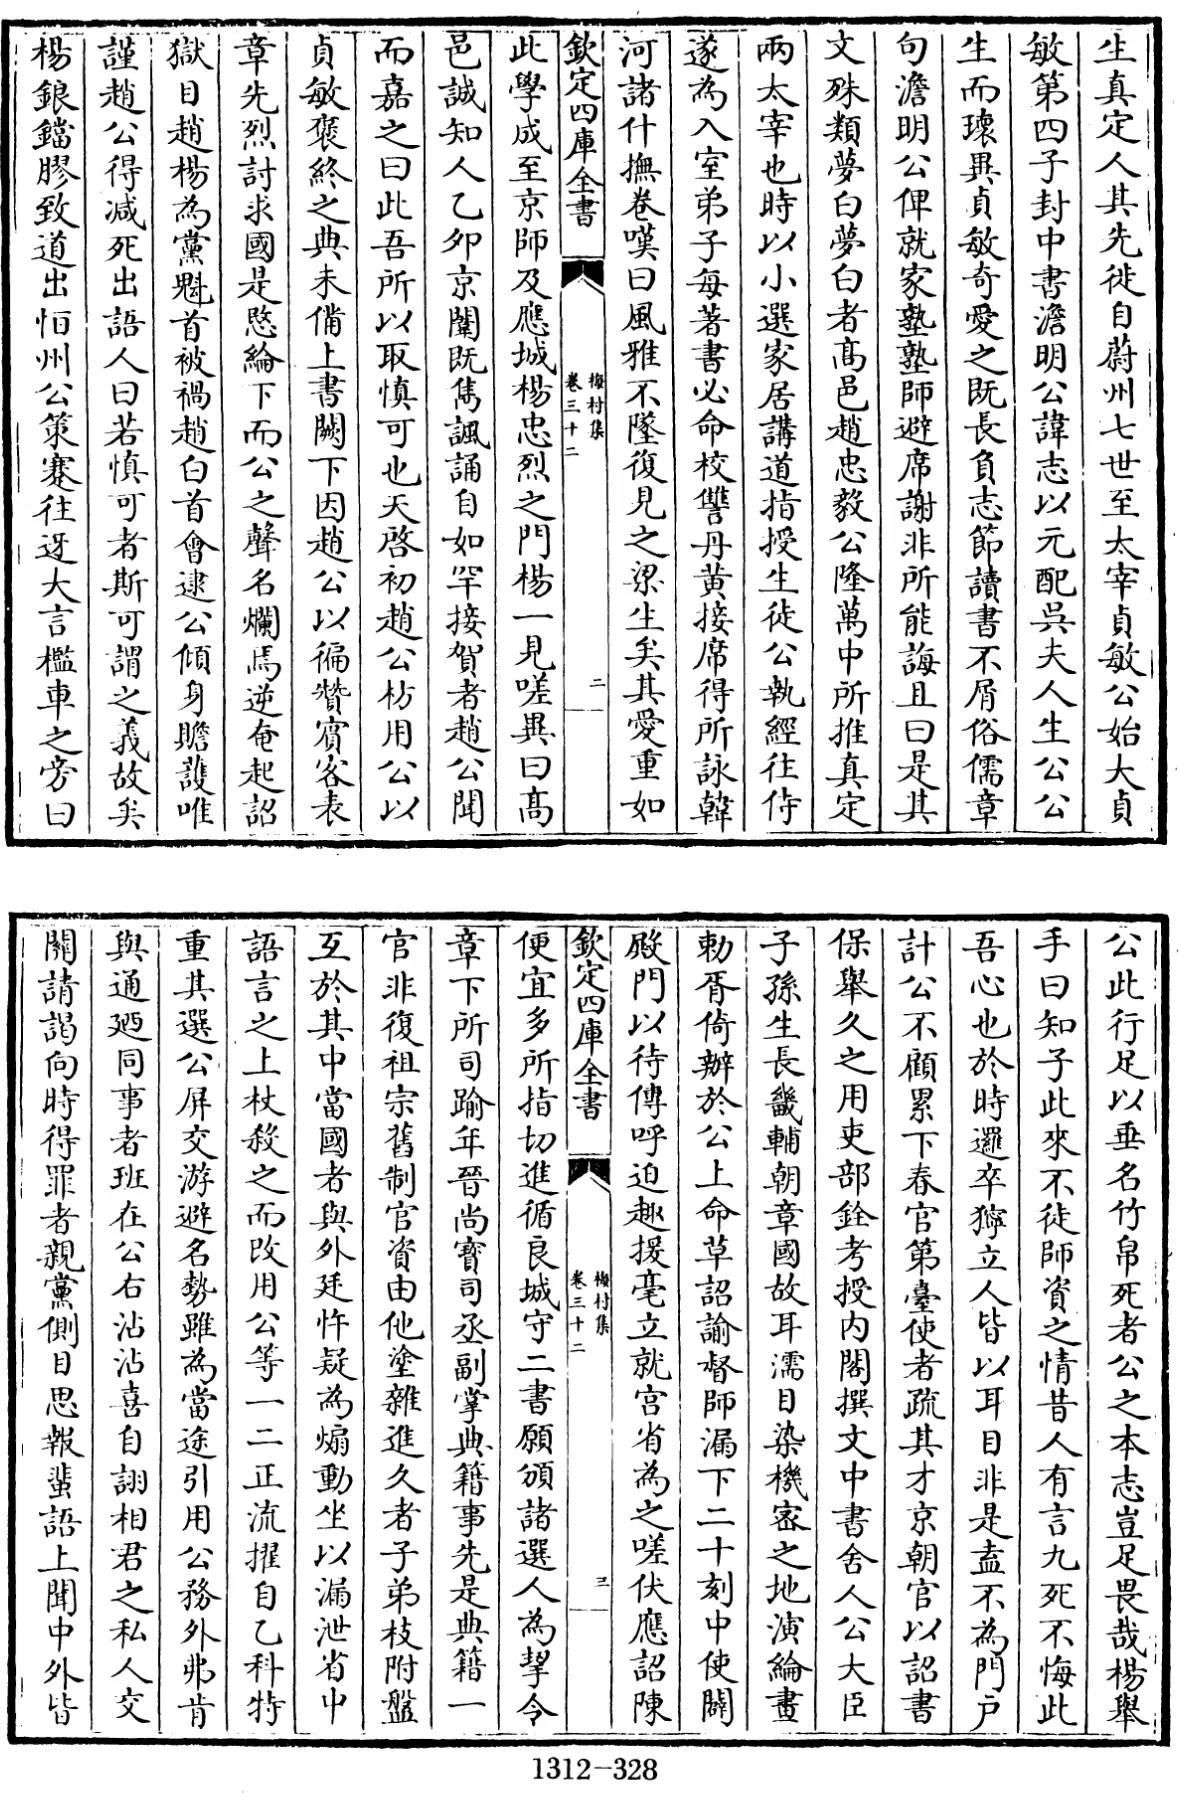 生真定人其先徙自蔚州七世至太宰貞敏公始大貞
敏第四子封中書澹明公諱志以元配吳夫人生公公
生而瓌異貞敏奇愛之既長負志節讀書不屑俗儒章
句澹明公俾就家塾塾師避席謝非所能誨且曰是其
文殊類夢白夢白者髙邑趙忠毅公隆萬中所推真定
兩太宰也時以小選家居講道指授生徒公執經往侍
遂為入室弟子每著書必命校讐丹黄接席得所詠韓
河諸什撫卷嘆曰風雅不墜復見之梁生矣其愛重如
欽定四庫全書
梅村集
卷三十二
二
此學成至京師及應城楊忠烈之門楊一見嗟異曰髙
邑誠知人乙夘京闈既雋諷誦自如罕接賀者趙公聞
而嘉之曰此吾所以取慎可也天啓初趙公枋用公以
貞敏褒終之典未備上書闕下因趙公以徧贄賓客表
章先烈討求國是愍綸下而公之聲名爛焉逆奄起詔
獄目趙楊為黨魁首被禍趙白首會逮公傾身贍護唯
謹趙公得减死出語人曰若慎可者斯可謂之義故矣
楊鋃鐺膠致道出怕州公策蹇往迓大言檻車之旁曰
公此行足以垂名竹帛死者公之本志豈足畏哉楊舉
手曰知子此來不徒師資之情昔人有言九死不悔此
吾心也於時邏卒獰立人皆以耳目非是盍不為門户
計公不顧累下春官第臺使者疏其才京朝官以詔書
保舉久之用吏部銓考授内閣撰文中書舍人公大臣
子孫生長畿輔朝章國故耳濡目染機宻之地演綸畫
勅胥倚辦於公上命草詔諭督師漏下二十刻中使闢
殿門以待傳呼迫趣援毫立就宫省為之嗟伏應詔陳
欽定四庫全書
梅村集
卷三十二
三
便宜多所指切進循良城守二書願頒諸選人為挈令
章下所司踰年晉尚寳司丞副掌典籍事先是典籍一
官非復祖宗舊制官資由他塗雜進久者子弟枝附盤
互於其中當國者與外廷忤疑為煽動坐以漏泄省中
語言之上杖殺之而改用公等一二正流擢自乙科特
重其選公屏交游避名勢雖為當途引用公務外弗肯
與通廼同事者班在公右沾沾喜自詡相君之私人交
關請謁向時得罪者親黨側目思報蜚語上聞中外皆
1312-328